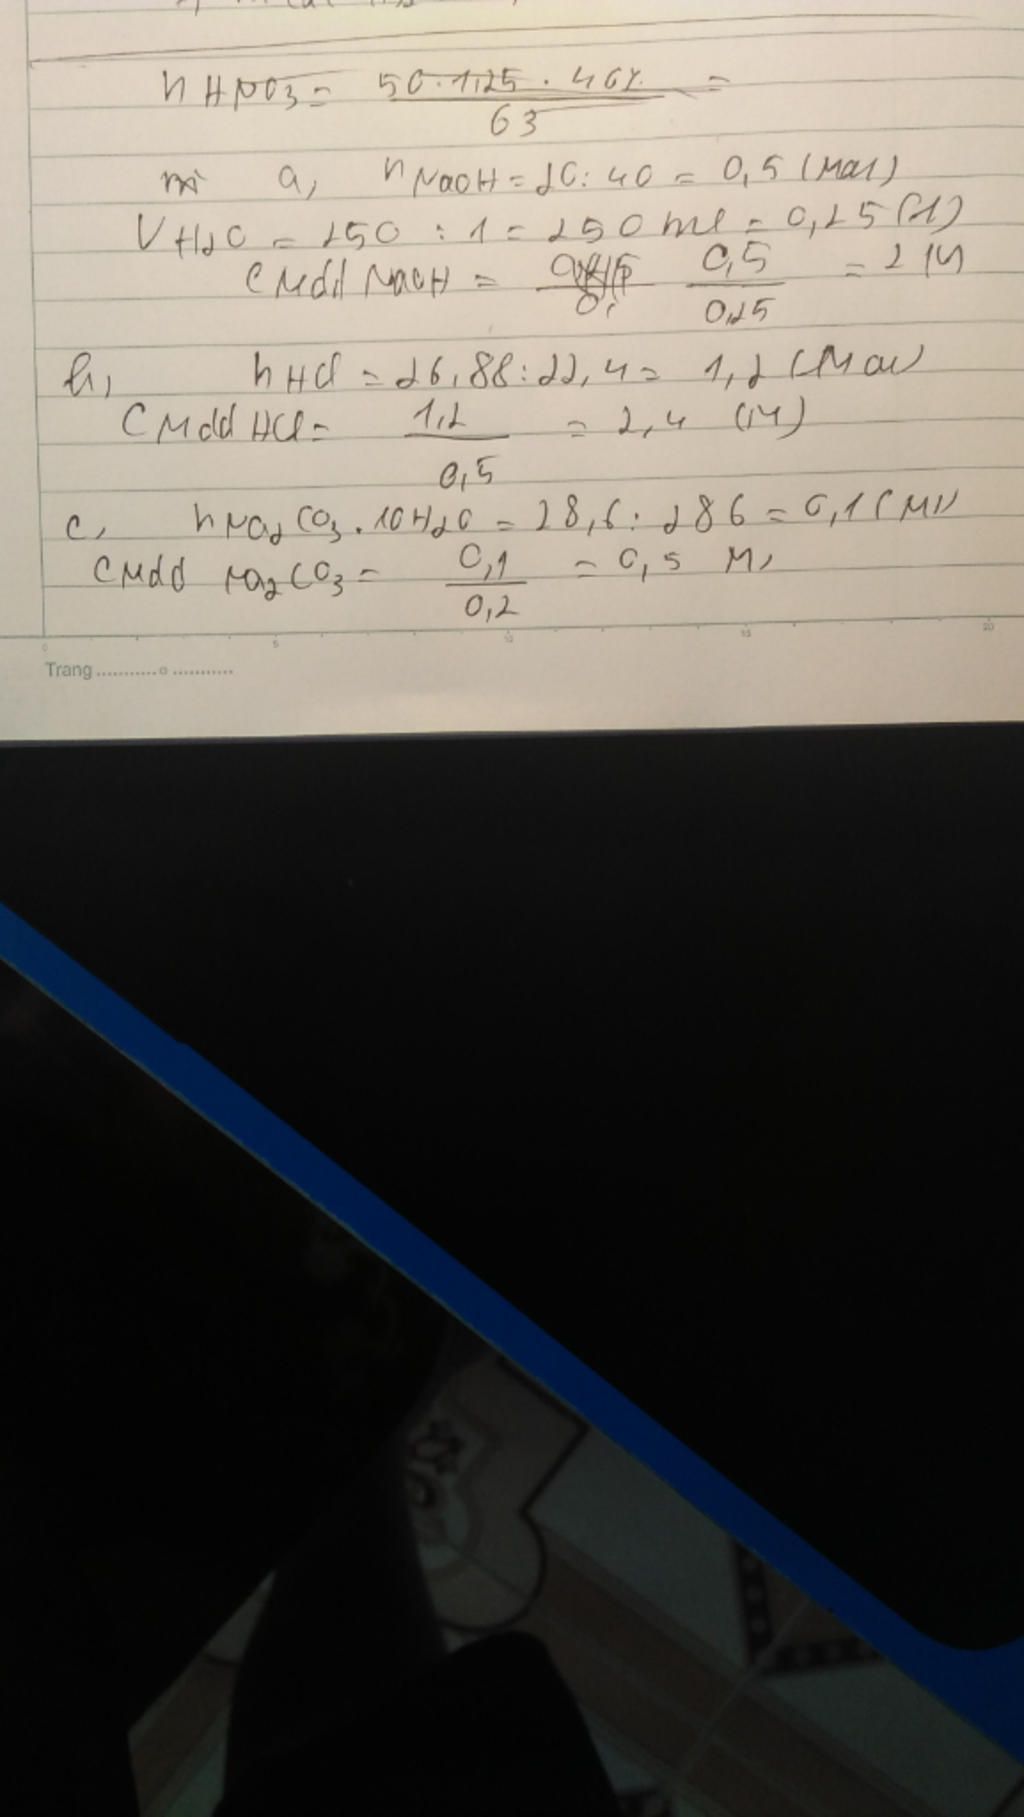 nHNO3 = 50.1,25.40% / 63 =
a, nNaOH = 20:40 = 0,5 (mol)
VH2O = 250 : 1 = 250 ml = 0,25 (l)
CMdd NaOH = 0,5 / 0,25 = 2 M
b, nHCl = 26,88:22,4 = 1,2 (Mol)
CMdd HCl = 1,2 / 0,5 = 2,4 (M)
c, nNa2CO3.10H2O = 28,6:286 = 0,1 (Ml)
CMdd Na2CO3 = 0,1 / 0,2 = 0,5 M
0 5 10 15 20
Trang